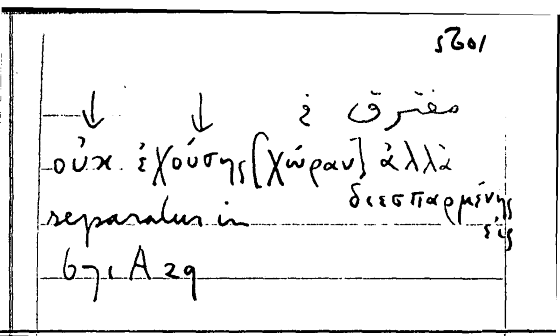 مفترق في
οὐκ ἐχούσης [χώραν] ἀλλὰ
διεσπαρμένης
separatus in εἰς
671 A 29